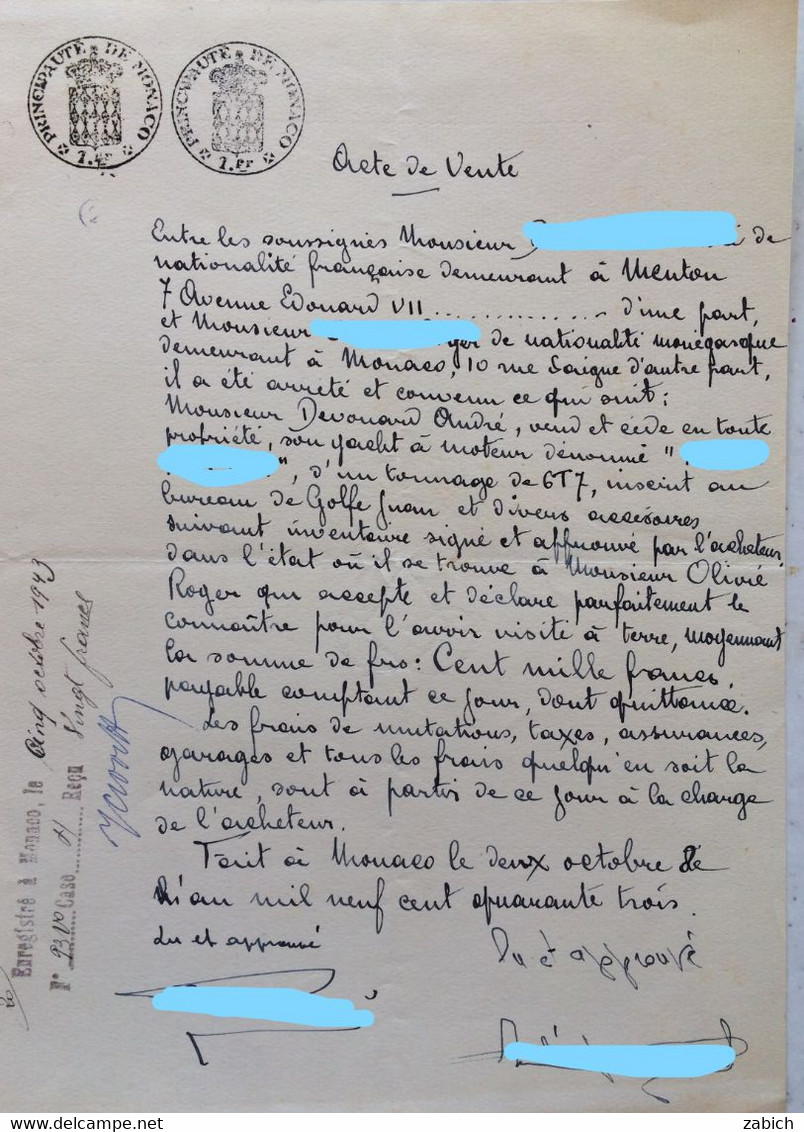 PRINCIPAUTÉ DE MONACO
1.Fr
PRINCIPAUTÉ DE MONACO
1.Fr
Acte de Vente
Entre les soussignés Monsieur D de
nationalité française demeurant à Menton
7 Avenue Edouard VII .............. d'une part,
et Monsieur ger de nationalité monégasque
demeurant à Monaco, 10 rue Saige d'autre part,
il a été arrêté et convenu ce qui suit:
Monsieur Devouard André, vend et cède en toute
propriété, son yacht à moteur dénommé "
", d'un tonnage de 6T7, inscrit au
bureau de Golfe Juan et divers accesoires
suivant inventaire signé et approuvé par l'acheteur,
dans l'état où il se trouve à Monsieur Olivié
Roger qui accepte et déclare parfaitement le
connaître pour l'avoir visité à terre, moyennant
la somme de frs: Cent mille francs,
payable comptant ce jour, dont quittance.
Les frais de mutations, taxes, assurances,
garages et tous les frais quelqu'en soit la
nature, sont à partir de ce jour à la charge
de l'acheteur.
Fait à Monaco le deux octobre de
l'an mil neuf cent quarante trois.
Lu et approuvé
Lu et approuvé
Enregistré à Monaco, le Cinq octobre 1943
F° 93 V° Case H Reçu Vingt francs
delcampe.net
zabich